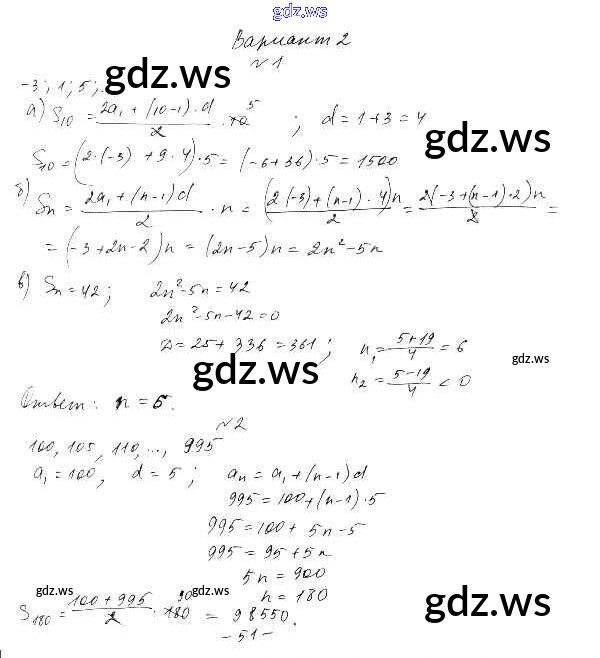 gdz.ws
Вариант 2
№1
-3; 1; 5; ...
gdz.ws
а) S₁₀ = (2a₁ + (10-1)·d)/2 · 10 5 ; d = 1+3 = 4
gdz.ws
S₁₀ = (2·(-3) + 9·4)·5 = (-6+36)·5 = 1500
б) Sₙ = (2a₁ + (n-1)d)/2 · n = (2(-3)+(n-1)·4)n/2 = 2(-3+(n-1)·2)n/2 =
gdz.ws
= (-3+2n-2)n = (2n-5)n = 2n²-5n
в) Sₙ = 42; 2n²-5n = 42
2n²-5n-42 = 0
D = 25+336 = 361; n₁ = (5+19)/4 = 6
gdz.ws
gdz.ws
n₂ = (5-19)/4 < 0
Ответ: n = 6.
№2
100, 105, 110, ..., 995
a₁ = 100, d = 5; aₙ = a₁ + (n-1)d
995 = 100+(n-1)·5
995 = 100 + 5n-5
995 = 95+5n
5n = 900
n = 180
gdz.ws
gdz.ws
gdz.ws
S₁₈₀ = (100+995)/2 · 180 90 = 98550.
-51-